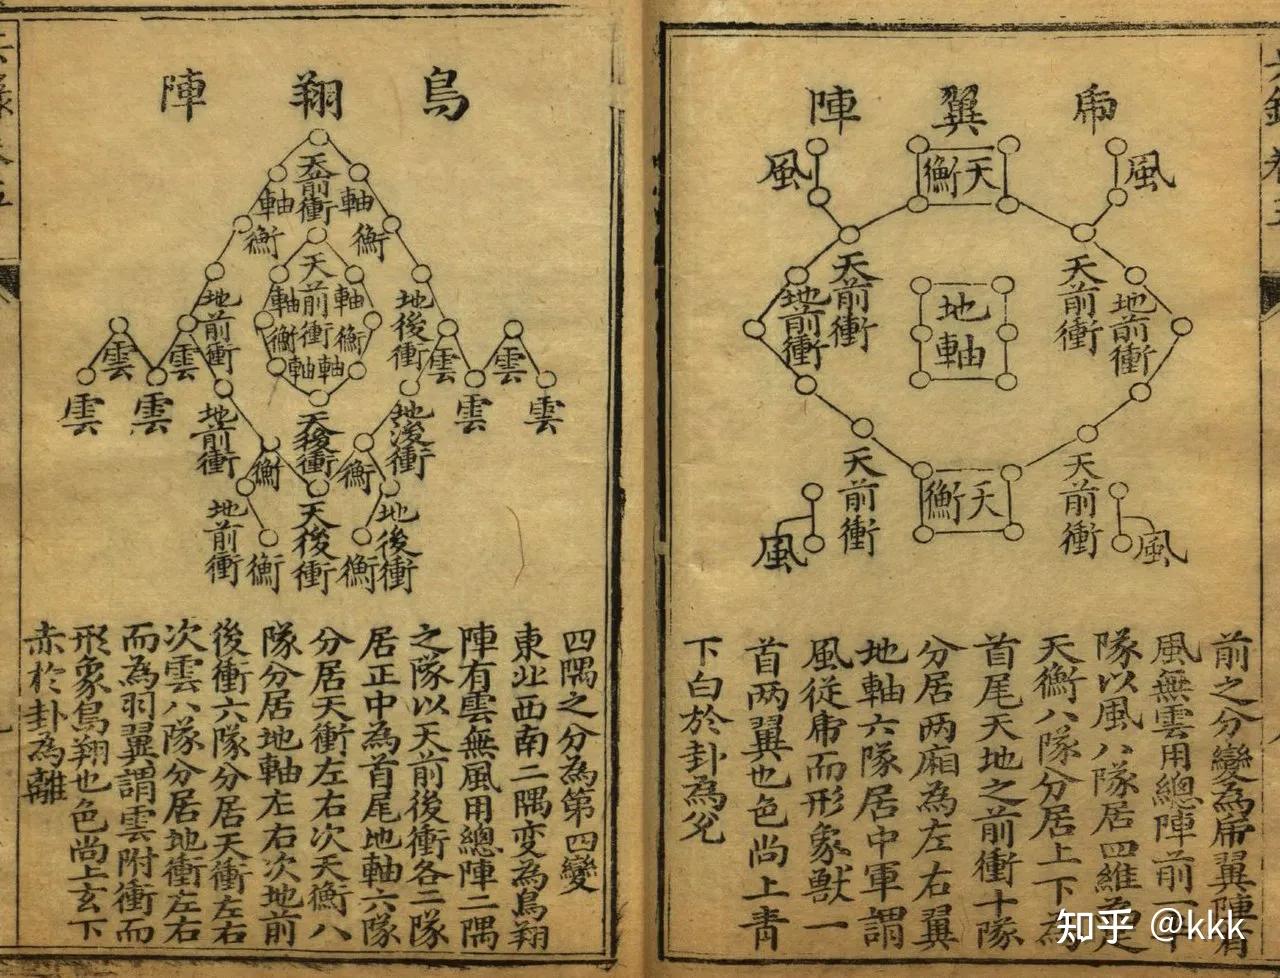 虎翼陣
風
天衡
風
天前衝
地前衝
地軸
天前衝
地前衝
天前衝
天衡
天前衝
風
風
前之分變為虎翼陣有
風無雲用總陣前一半
隊以風八隊居四維為足
天衡八隊分居上下為
首尾天地之前衝十隊
分居两廂為左右翼
地軸六隊居中軍謂
風從虎而形象獸一
首两翼也色尚上青
下白於卦為兌
鳥翔陣
天前衝
軸
軸
衡
衡
天前衝
軸
軸
衡
衡
軸
軸
地後衝
地前衝
雲
雲
雲
雲
雲
雲
雲
雲
地後衝
天後衝
地前衝
衡
衡
地後衝
天後衝
地前衝
衡
衡
四隅之分為第四變
東北西南二隅变為鳥翔
陣有雲無風用總陣二隅
之隊以天前後衝各二隊
居正中為首尾地軸六隊
分居天衝左右次天衡八
隊分居地軸左右次地前
後衝六隊分居天衝左右
次雲八隊分居地衝左右
而為羽翼謂雲附衝而
形象鳥翔也色尚上玄下
赤於卦為離
知乎 @kkk